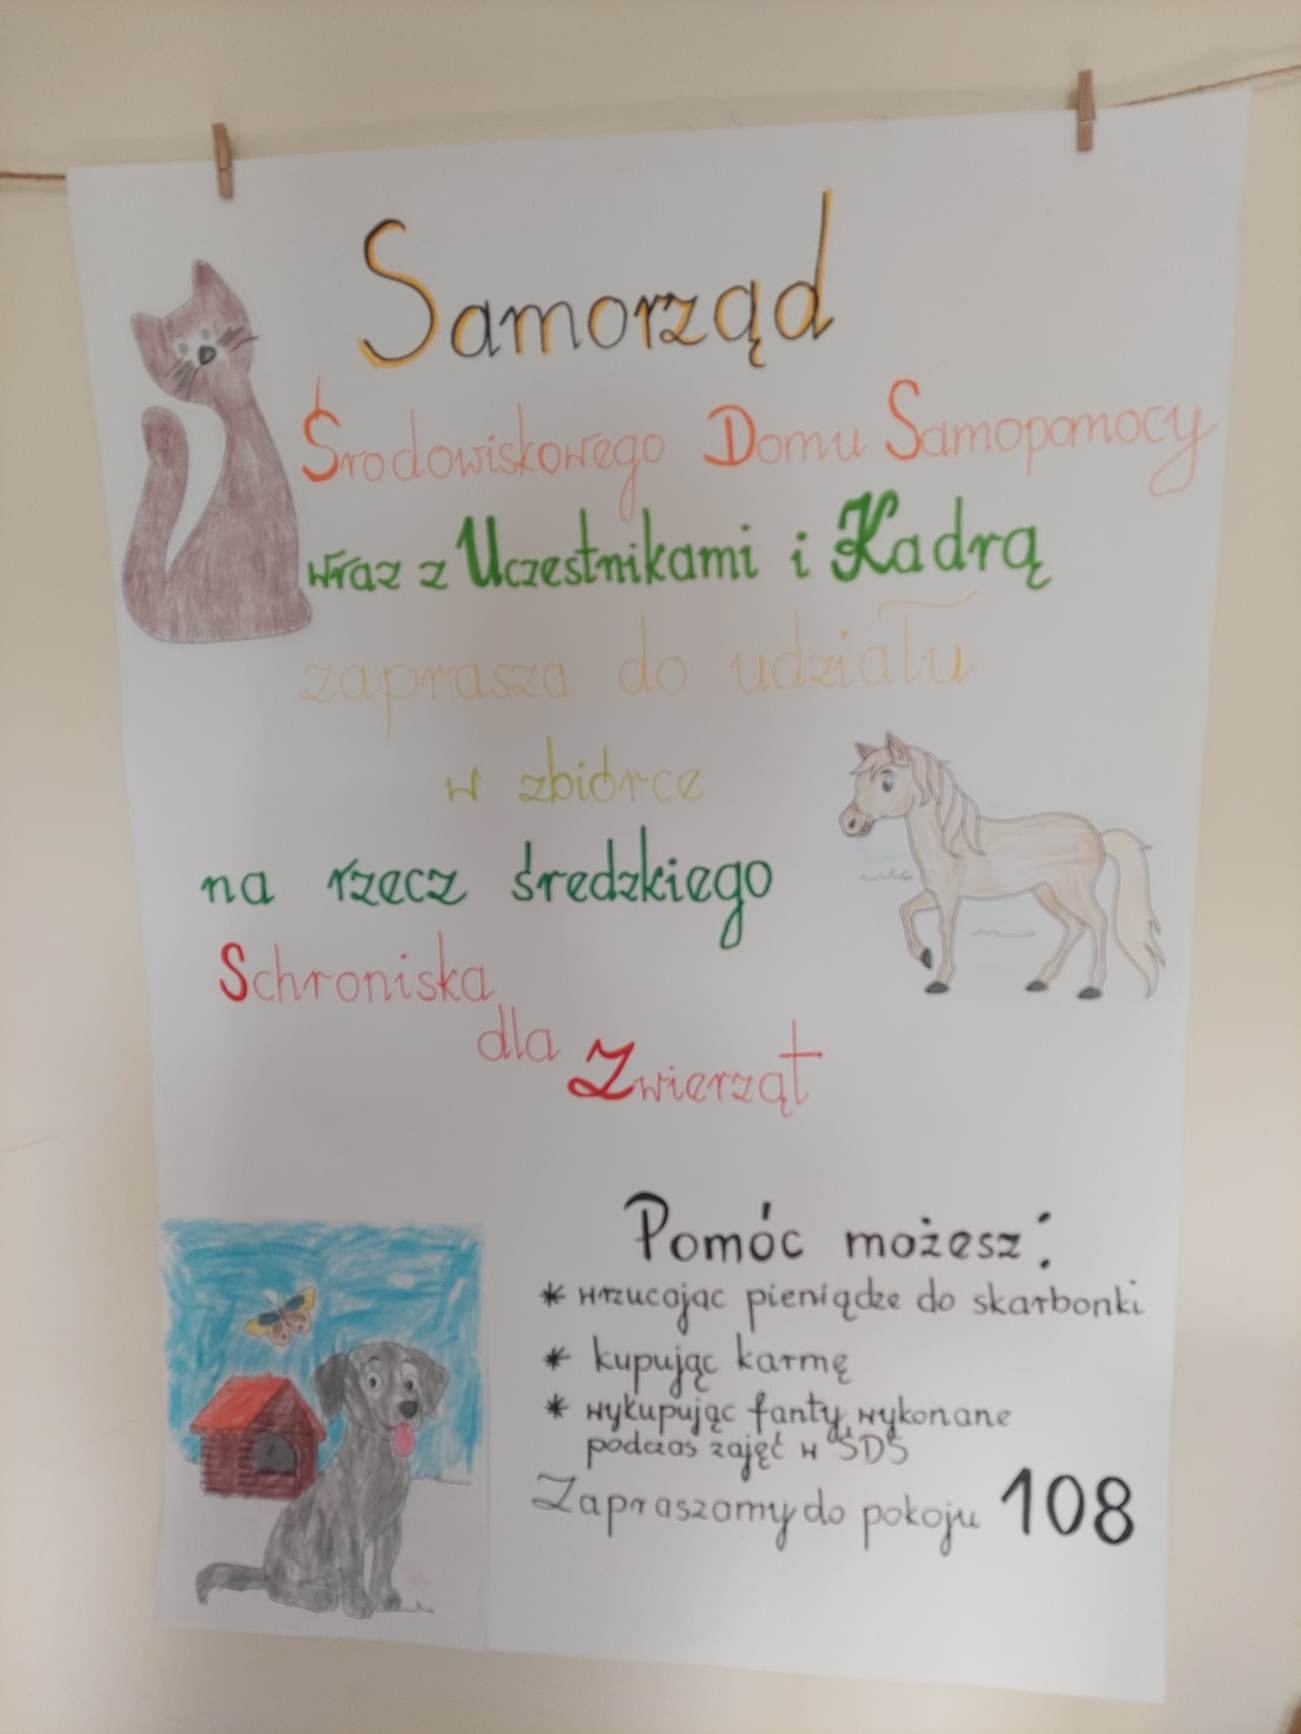 Samorząd
Środowiskowego Domu Samopomocy
wraz z Uczestnikami i Kadrą
zaprasza do udziału
w zbiórce
na rzecz średzkiego
Schroniska
dla Zwierząt
Pomóc możesz:
* wrzucając pieniądze do skarbonki
* kupując karmę
* wykupując fanty, wykonane
podczas zajęć w ŚDS
Zapraszamy do pokoju 108